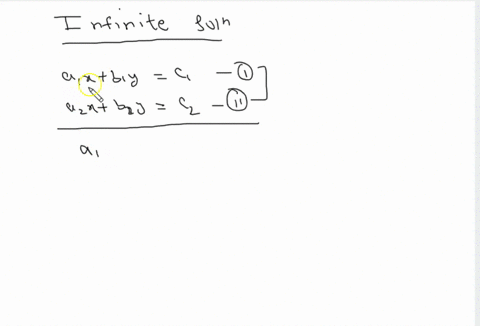 Infinite soln
a₁x + b₁y = c₁ – (i)
a₂x + b₂y = c₂ – (ii)
a₁